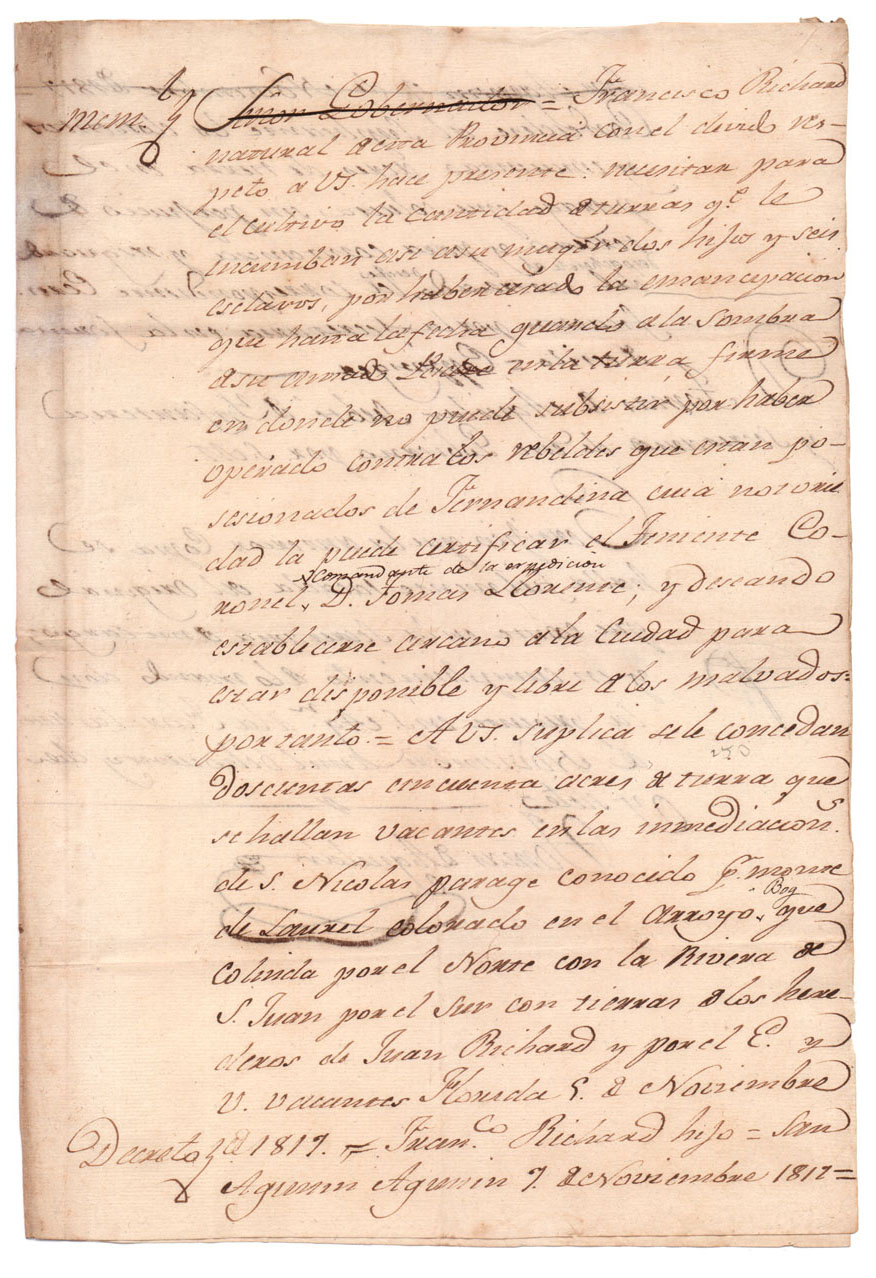 mem.l
Señor Gobernador = Francisco Richard
natural de esta Provincia con el devido res-
peto a VS. hace presente: necesitar para
el cultivo la cantidad de tierras qe. le
incumban asi a su muger dos hijos y seis
esclavos, por haber la emancepacion
que hasta la fecha guardo a la sombra
de su amado en la tierra firme
en donde no puede subsistir por haber
operado contra los rebeldes que estan po-
sesionados de Fernandina cuia notorie
dad la puede certificar el Teniente Co-
comandante de la expedicion
ronel, D. Tomas Llorente; y deseando
establecerse cercano a la Ciudad para
estar disponible y libre de los malvados:
por tanto = A VS. suplica se le concedan
250
doscientas cincuenta acres de tierra que
se hallan vacantes en las inmediacions.
de S. Nicolas parage conocido pr. monte
de Laurel colorado en el Arroyo Bog que
colinda por el Norte con la Rivera de
S. Juan por el sur con tierras de los here-
deros de Juan Richard y por el E. y
V. vacantes Florida 5. de Noviembre
Decreto de 1817. = Franco. Richard hijo = San
Agustin Agustin 7. de Noviembre 1817 =